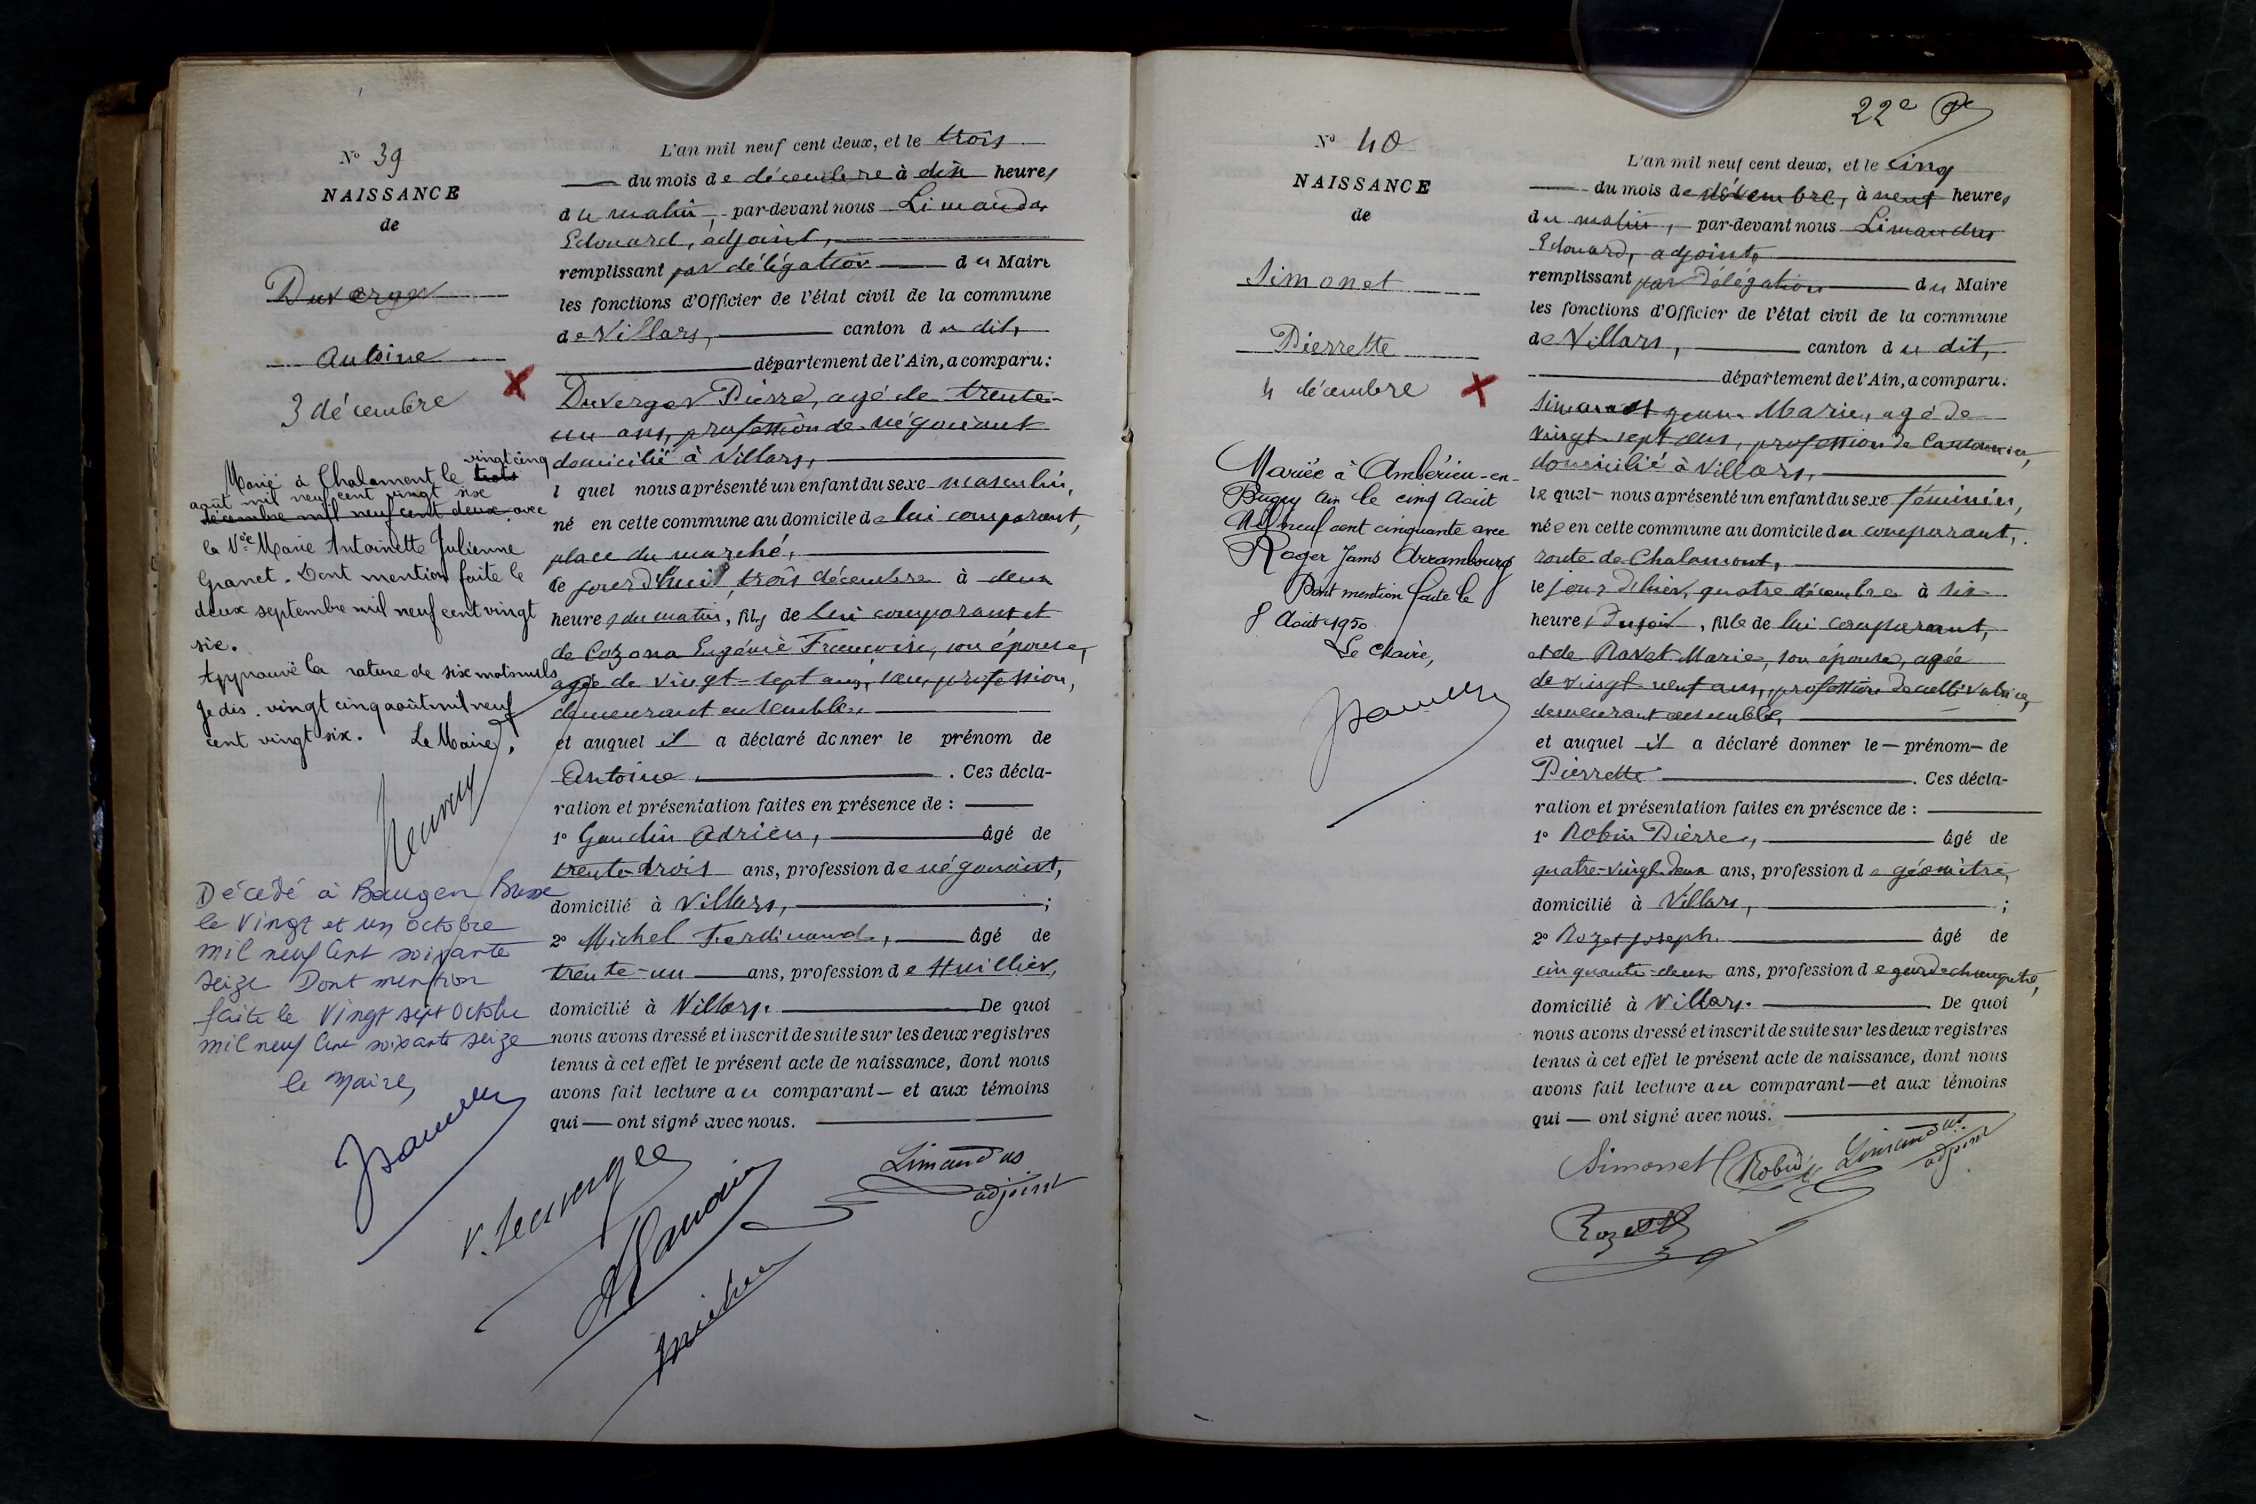 N° 39
NAISSANCE
de
Duverger
Antoine
3 décembre
Marié à Chalamont le vingt cinq trois
août mil neuf cent vingt six
décembre mil neuf cent deux avec
la Vve Marie Antoinette Julienne
Granet. Dont mention faite le
deux septembre mil neuf cent vingt
six.
Approuvé la rature de six mots nuls
Je dis. vingt cinq août mil neuf
cent vingt six. Le Maire,
Décédé à Baugen Bresse
le Vingt et un octobre
mil neuf cent soixante
seize Dont mention
faite le Vingt sept octobre
mil neuf cent soixante seize
le Maire,
L'an mil neuf cent deux, et le trois
du mois de décembre à dix heures
du matin, par-devant nous Limandas
Edouard, adjoint,
remplissant par délégation du Maire
les fonctions d'Officier de l'état civil de la commune
de Villars, canton du dit,
département de l'Ain, a comparu:
Duverger Pierre, agé de trente-
un ans, profession de négociant
domicilié à Villars,
l quel nous a présenté un enfant du sexe masculin,
né en cette commune au domicile de lui comparant,
place du marché,
le jourd'hui, trois décembre à deux
heures du matin, fils de lui comparant et
de Cozona Eugénie Françoise, son épouse,
agée de vingt-sept ans, sans profession,
demeurant ensemble,
et auquel il a déclaré donner le prénom de
Antoine. Ces décla-
ration et présentation faites en présence de :
1° Gaudin Adrien, âgé de
trente-trois ans, profession de négociant,
domicilié à Villars, ;
2° Michel Ferdinand, âgé de
trente-un ans, profession de Huillier,
domicilié à Villars. De quoi
nous avons dressé et inscrit de suite sur les deux registres
tenus à cet effet le présent acte de naissance, dont nous
avons fait lecture au comparant — et aux témoins
qui — ont signé avec nous.
Limandas
adjoint
22e
N° 40
NAISSANCE
de
Simonet
Pierrette
4 décembre
Mariée à Ambérieu-en-
Bugey Ain le cinq Août
Mil neuf cent cinquante avec
Roger Jams Arrambourg
Dont mention faite le
8 Août 1950
Le Maire,
L'an mil neuf cent deux, et le cinq
du mois de décembre, à neuf heures
du matin, par-devant nous Limandas
Edouard, adjoint,
remplissant par Délégation du Maire
les fonctions d'Officier de l'état civil de la commune
de Villars, canton du dit,
département de l'Ain, a comparu:
Simonet Jean-Marie, agé de
vingt-sept ans, profession de Cantonnier,
domicilié à Villars,
lequel — nous a présenté un enfant du sexe féminin,
née en cette commune au domicile du comparant,
route de Chalamont,
le jour d'hier, quatre décembre à six
heures du soir, fille de lui comparant,
et de Ravet Marie, son épouse, agée
de vingt-neuf ans, profession de cultivatrice,
demeurant ensemble,
et auquel il a déclaré donner le — prénom — de
Pierrette. Ces décla-
ration et présentation faites en présence de :
1° Robin Pierre, âgé de
quatre-vingt-deux ans, profession de géomètre,
domicilié à Villars, ;
2° Rozet Joseph. âgé de
cinquante-deux ans, profession de garde champêtre,
domicilié à Villars. De quoi
nous avons dressé et inscrit de suite sur les deux registres
tenus à cet effet le présent acte de naissance, dont nous
avons fait lecture au comparant — et aux témoins
qui — ont signé avec nous.
Simonet Robin Limandas
adjoint
Rozet